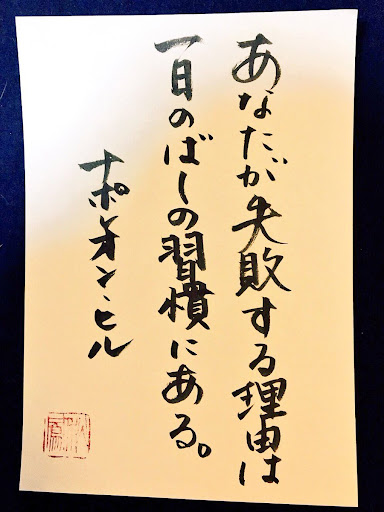 あなたが失敗する理由は
一日のばしの習慣にある。
ナポレオン・ヒル